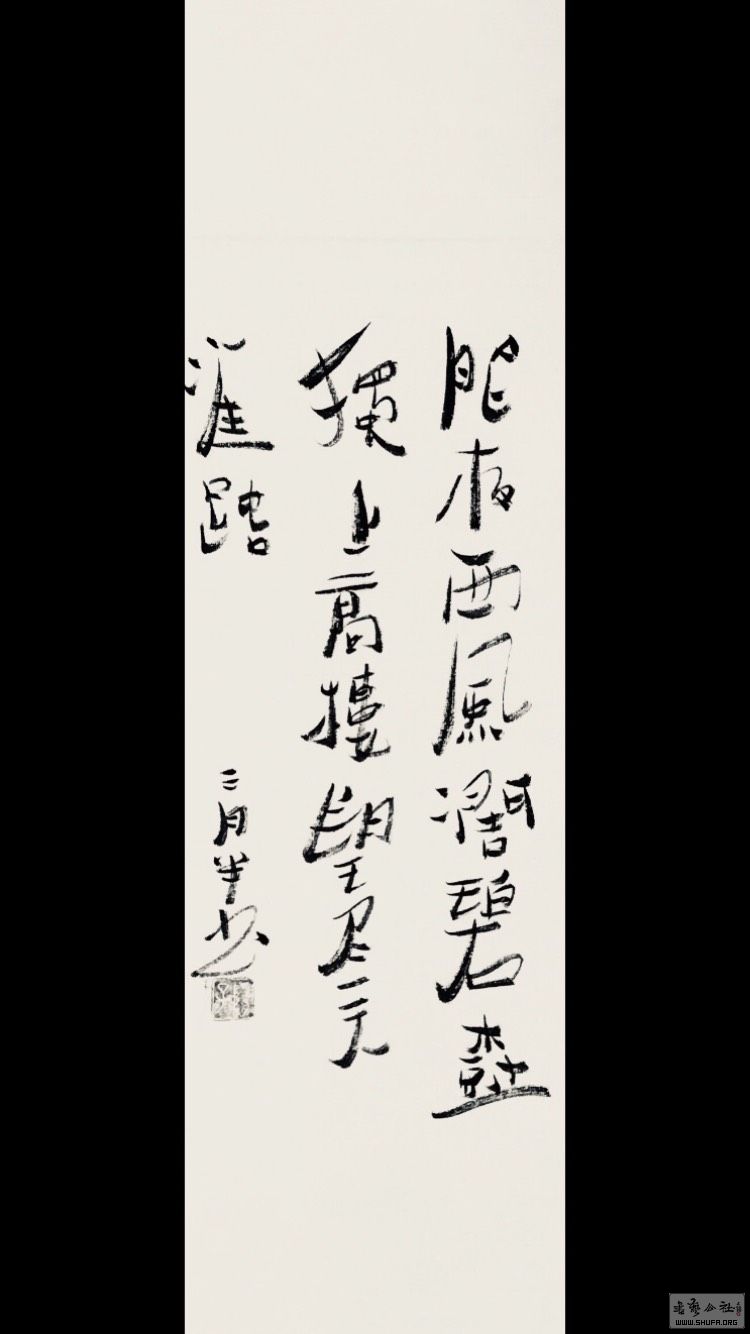 昨夜西風凋碧樹
獨上高樓望尽天
涯路
三月半书
书艺公社
WWW.SHUFA.ORG